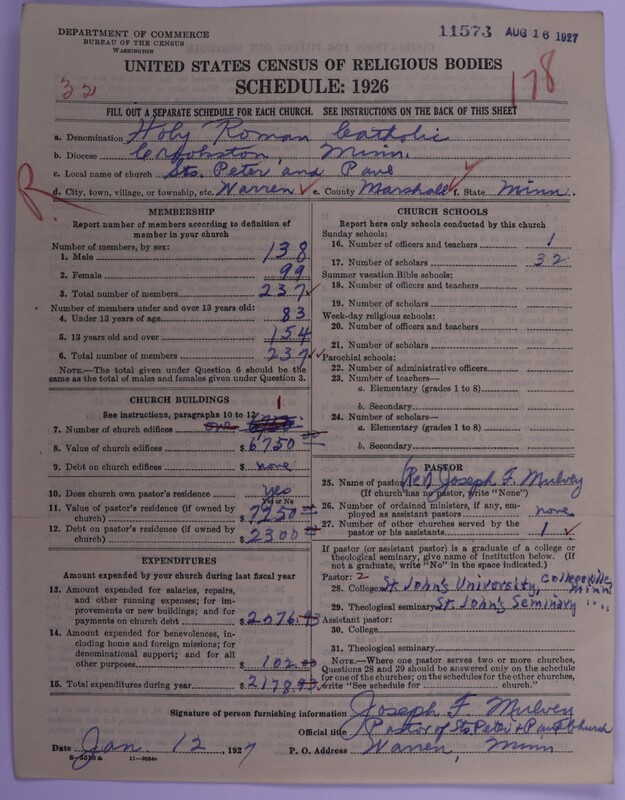 DEPARTMENT OF COMMERCE
BUREAU OF THE CENSUS
WASHINGTON
11573 AUG 16 1927
UNITED STATES CENSUS OF RELIGIOUS BODIES
SCHEDULE: 1926
32
178
FILL OUT A SEPARATE SCHEDULE FOR EACH CHURCH. SEE INSTRUCTIONS ON THE BACK OF THIS SHEET
a. Denomination Holy Roman Catholic
b. Diocese Crookston, Minn.
c. Local name of church Sts. Peter and Paul
d. City, town, village, or township, etc. Warren e. County Marshall f. State Minn.
R
MEMBERSHIP
Report number of members according to definition of
member in your church
Number of members, by sex:
1. Male 138
2. Female 99
3. Total number of members 237
Number of members under and over 13 years old:
4. Under 13 years of age 83
5. 13 years old and over 154
6. Total number of members 237
NOTE.—The total given under Question 6 should be the
same as the total of males and females given under Question 3.
CHURCH BUILDINGS
See instructions, paragraphs 10 to 12
7. Number of church edifices one 1
8. Value of church edifices $ 6750 00
9. Debt on church edifices $ none
10. Does church own pastor's residence yes
Yes or No
11. Value of pastor's residence (if owned by
church) $ 7250 00
12. Debt on pastor's residence (if owned by
church) $ 2300 00
EXPENDITURES
Amount expended by your church during last fiscal year
13. Amount expended for salaries, repairs,
and other running expenses; for im-
provements or new buildings; and for
payments on church debt $ 2076.93
14. Amount expended for benevolences, in-
cluding home and foreign missions; for
denominational support; and for all
other purposes $ 102.00
15. Total expenditures during year $ 2178.93
CHURCH SCHOOLS
Report here only schools conducted by this church
Sunday schools:
16. Number of officers and teachers 1
17. Number of scholars 32
Summer vacation Bible schools:
18. Number of officers and teachers
19. Number of scholars
Week-day religious schools:
20. Number of officers and teachers
21. Number of scholars
Parochial schools:
22. Number of administrative officers
23. Number of teachers—
a. Elementary (grades 1 to 8)
b. Secondary
24. Number of scholars—
a. Elementary (grades 1 to 8)
b. Secondary
PASTOR
25. Name of pastor (Rev) Joseph F. Mulvey
(If church has no pastor, write "None")
26. Number of ordained ministers, if any, em-
ployed as assistant pastors none
27. Number of other churches served by the
pastor or his assistants 1
If pastor (or assistant pastor) is a graduate of a college or
theological seminary, give name of institution below. (If
not a graduate, write "No" in the space indicated.)
Pastor: 2
28. College St John's University, Collegeville, Minn
29. Theological seminary St. John's Seminary " "
Assistant pastor:
30. College
31. Theological seminary
NOTE.—Where one pastor serves two or more churches,
Questions 28 and 29 should be answered only on the schedule
for one of the churches; on the schedules for the other churches,
write "See schedule for church."
Signature of person furnishing information Joseph F. Mulvey
Official title Pastor of Sts. Peter & Paul Church
Date Jan. 12, 1927 P. O. Address Warren, Minn
8—5518a 11—9084a